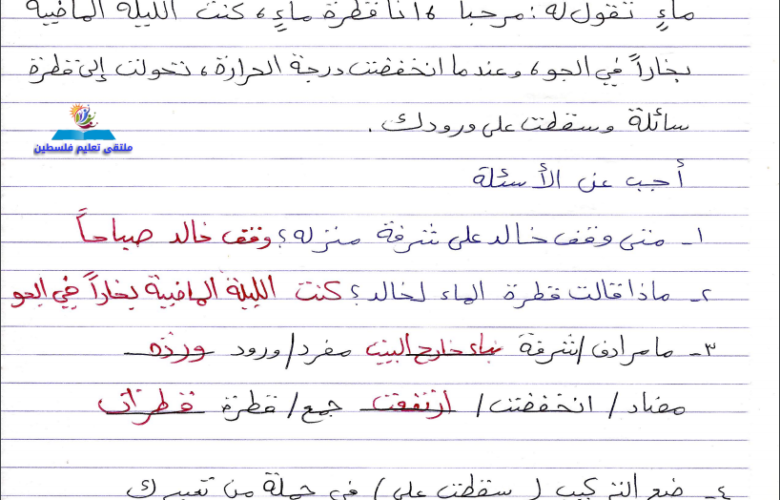 ماءٍ تقول له: مرحباً، أنا قطرة ماءٍ، كنت الليلة الماضية
بخاراً في الجو، وعندما انخفضت درجة الحرارة، تحولت إلى قطرة
سائلة وسقطت على ورودك.
ملتقى تعليم فلسطين
أجب عن الأسئلة
١- متى وقف خالد على شرفة منزله؟ وقف خالد صباحاً
٢- ماذا قالت قطرة الماء لخالد؟ كنت الليلة الماضية بخاراً في الجو
٣- ما مرادف/ شرفة بناء خارج البيت مفرد/ ورود وردة
مضاد/ انخفضت/ ارتفعت جمع/ قطرة قطرات
٤- ضع التركيب ( سقطت على ) في جملة من تعبيرك